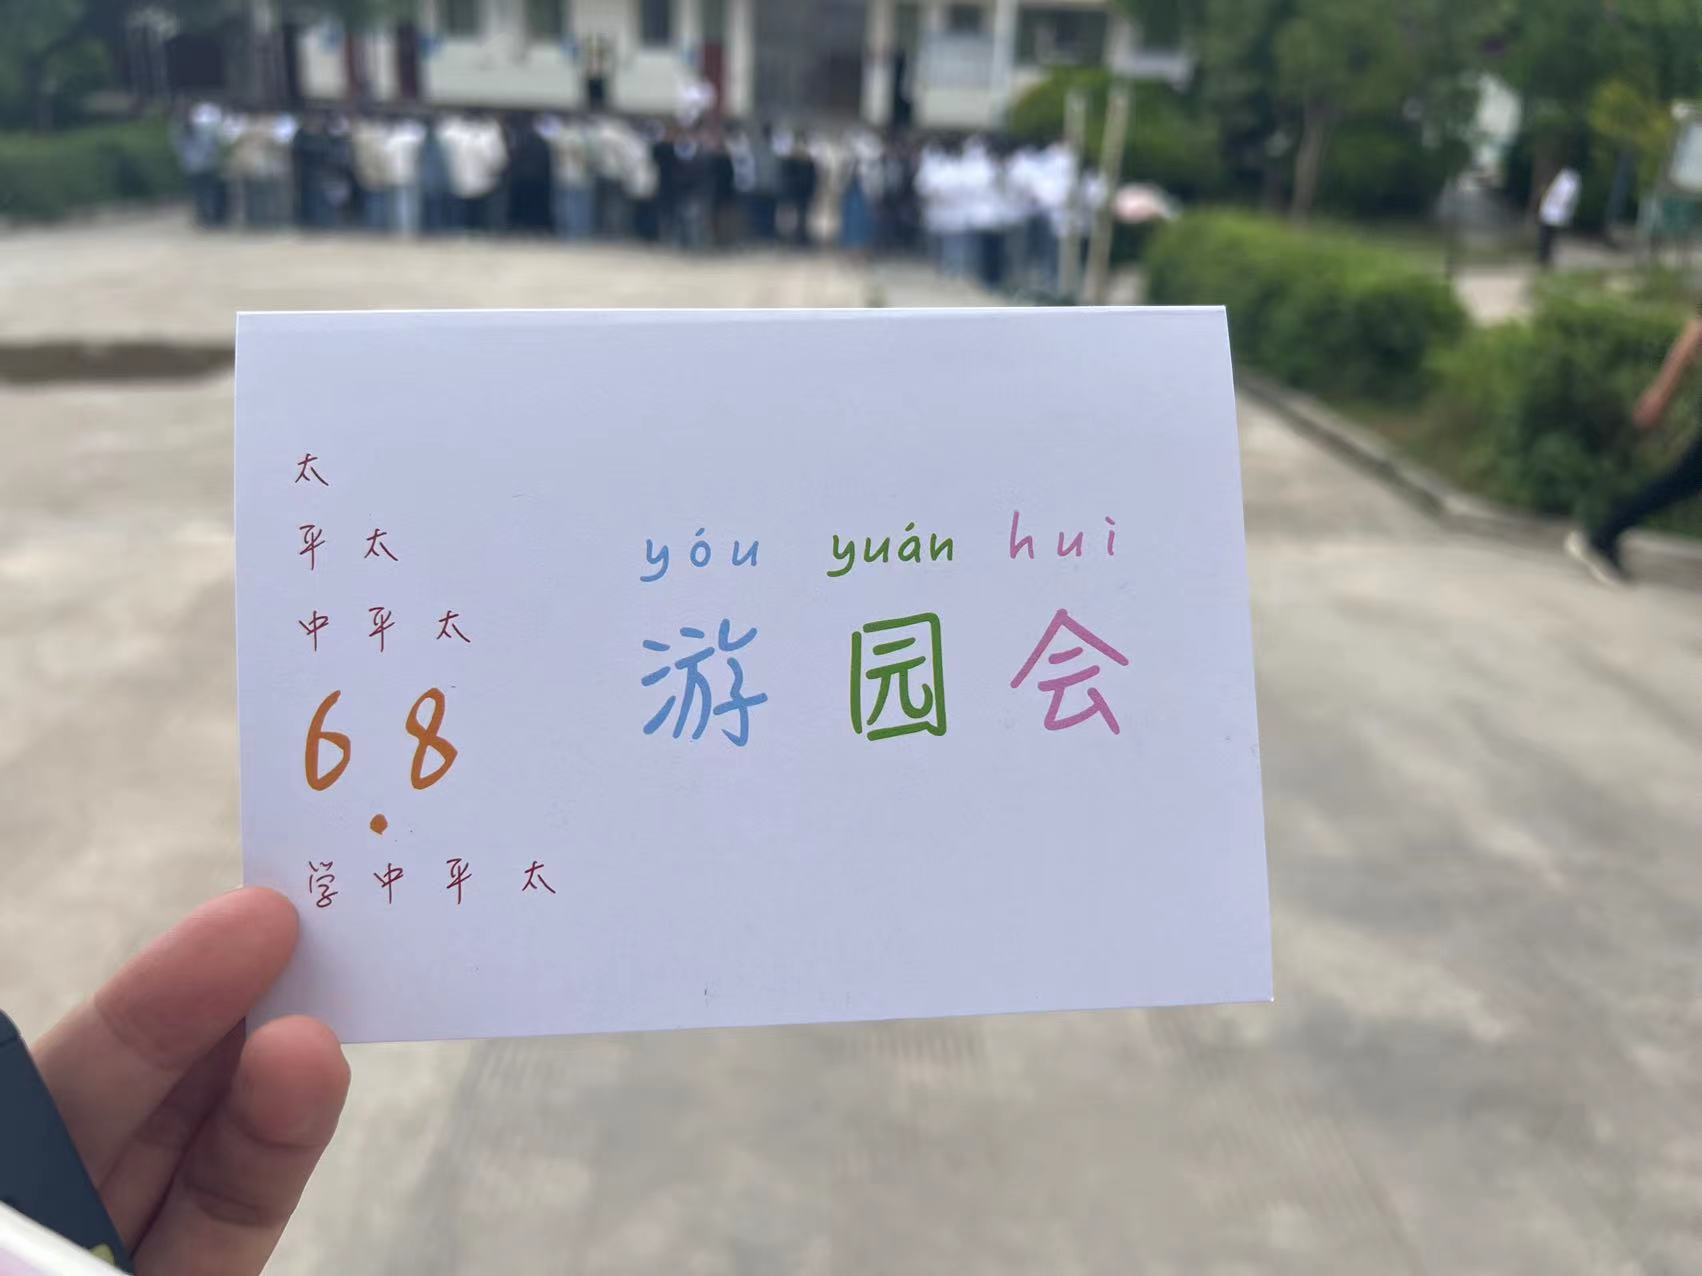 太
平 太
中 平 太
6.8
学 中 平 太
yóu yuán huì
游 园 会